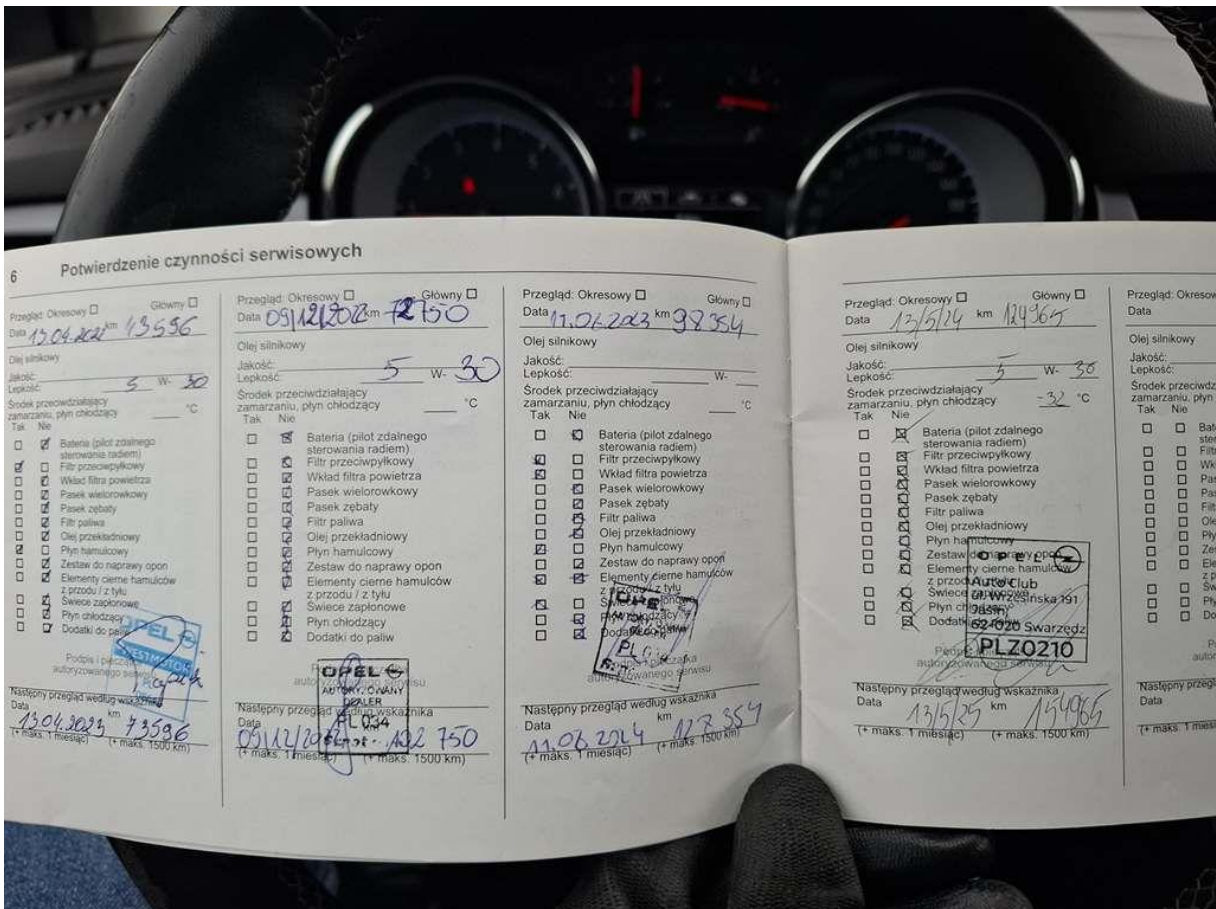 6 Potwierdzenie czynności serwisowych
Przegląd: Okresowy Główny
Data 13.04.2022 km 43596
Olej silnikowy
Jakość:
Lepkość: 5 W- 30
Środek przeciwdziałający
zamarzaniu, płyn chłodzący °C
Tak Nie
Bateria (pilot zdalnego
sterowania radiem)
Filtr przeciwpyłkowy
Wkład filtra powietrza
Pasek wielorowkowy
Pasek zębaty
Filtr paliwa
Olej przekładniowy
Płyn hamulcowy
Zestaw do naprawy opon
Elementy cierne hamulców
z przodu / z tyłu
Świece zapłonowe
Płyn chłodzący
Dodatki do paliw
OPEL
WESTMOTOR
Podpis i pieczątka
autoryzowanego serwisu
Następny przegląd według wskaźnika
Data km
13.04.2023 73596
(+ maks. 1 miesiąc) (+ maks. 1500 km)
Przegląd: Okresowy Główny
Data 09/12/2022 km 72750
Olej silnikowy
Jakość:
Lepkość: 5 W- 30
Środek przeciwdziałający
zamarzaniu, płyn chłodzący °C
Tak Nie
Bateria (pilot zdalnego
sterowania radiem)
Filtr przeciwpyłkowy
Wkład filtra powietrza
Pasek wielorowkowy
Pasek zębaty
Filtr paliwa
Olej przekładniowy
Płyn hamulcowy
Zestaw do naprawy opon
Elementy cierne hamulców
z przodu / z tyłu
Świece zapłonowe
Płyn chłodzący
Dodatki do paliw
OPEL
AUTORYZOWANY
DEALER
PL 034
Następny przegląd według wskaźnika
Data
09/12/ 102 750
(+ maks. 1 miesiąc) (+ maks. 1500 km)
Przegląd: Okresowy Główny
Data 11.06.2023 km 98354
Olej silnikowy
Jakość:
Lepkość: W-
Środek przeciwdziałający
zamarzaniu, płyn chłodzący °C
Tak Nie
Bateria (pilot zdalnego
sterowania radiem)
Filtr przeciwpyłkowy
Wkład filtra powietrza
Pasek wielorowkowy
Pasek zębaty
Filtr paliwa
Olej przekładniowy
Płyn hamulcowy
Zestaw do naprawy opon
Elementy cierne hamulców
z przodu / z tyłu
Płyn chłodzący
Dodatki do paliw
autoryzowanego serwisu
Następny przegląd według wskaźnika
Data km
11.06.2024 127354
(+ maks. 1 miesiąc) (+ maks. 1500 km)
Przegląd: Okresowy Główny
Data 13/5/24 km 124965
Olej silnikowy
Jakość:
Lepkość: 5 W- 30
Środek przeciwdziałający
zamarzaniu, płyn chłodzący -32 °C
Tak Nie
Bateria (pilot zdalnego
sterowania radiem)
Filtr przeciwpyłkowy
Wkład filtra powietrza
Pasek wielorowkowy
Pasek zębaty
Filtr paliwa
Olej przekładniowy
Płyn hamulcowy
Zestaw do naprawy opon
Elementy cierne hamulców
z przodu / z tyłu
Świece zapłonowe
Płyn chłodzący
Dodatki do paliw
OPEL
Auto Club
ul. Wrzesińska 191
Jasin,
62-020 Swarzędz
PLZ0210
autoryzowanego serwisu
Następny przegląd według wskaźnika
Data km
13/5/25 154965
(+ maks. 1 miesiąc) (+ maks. 1500 km)
Przegląd:
Data
Olej silnikowy
Jakość:
Lepkość:
Tak Nie